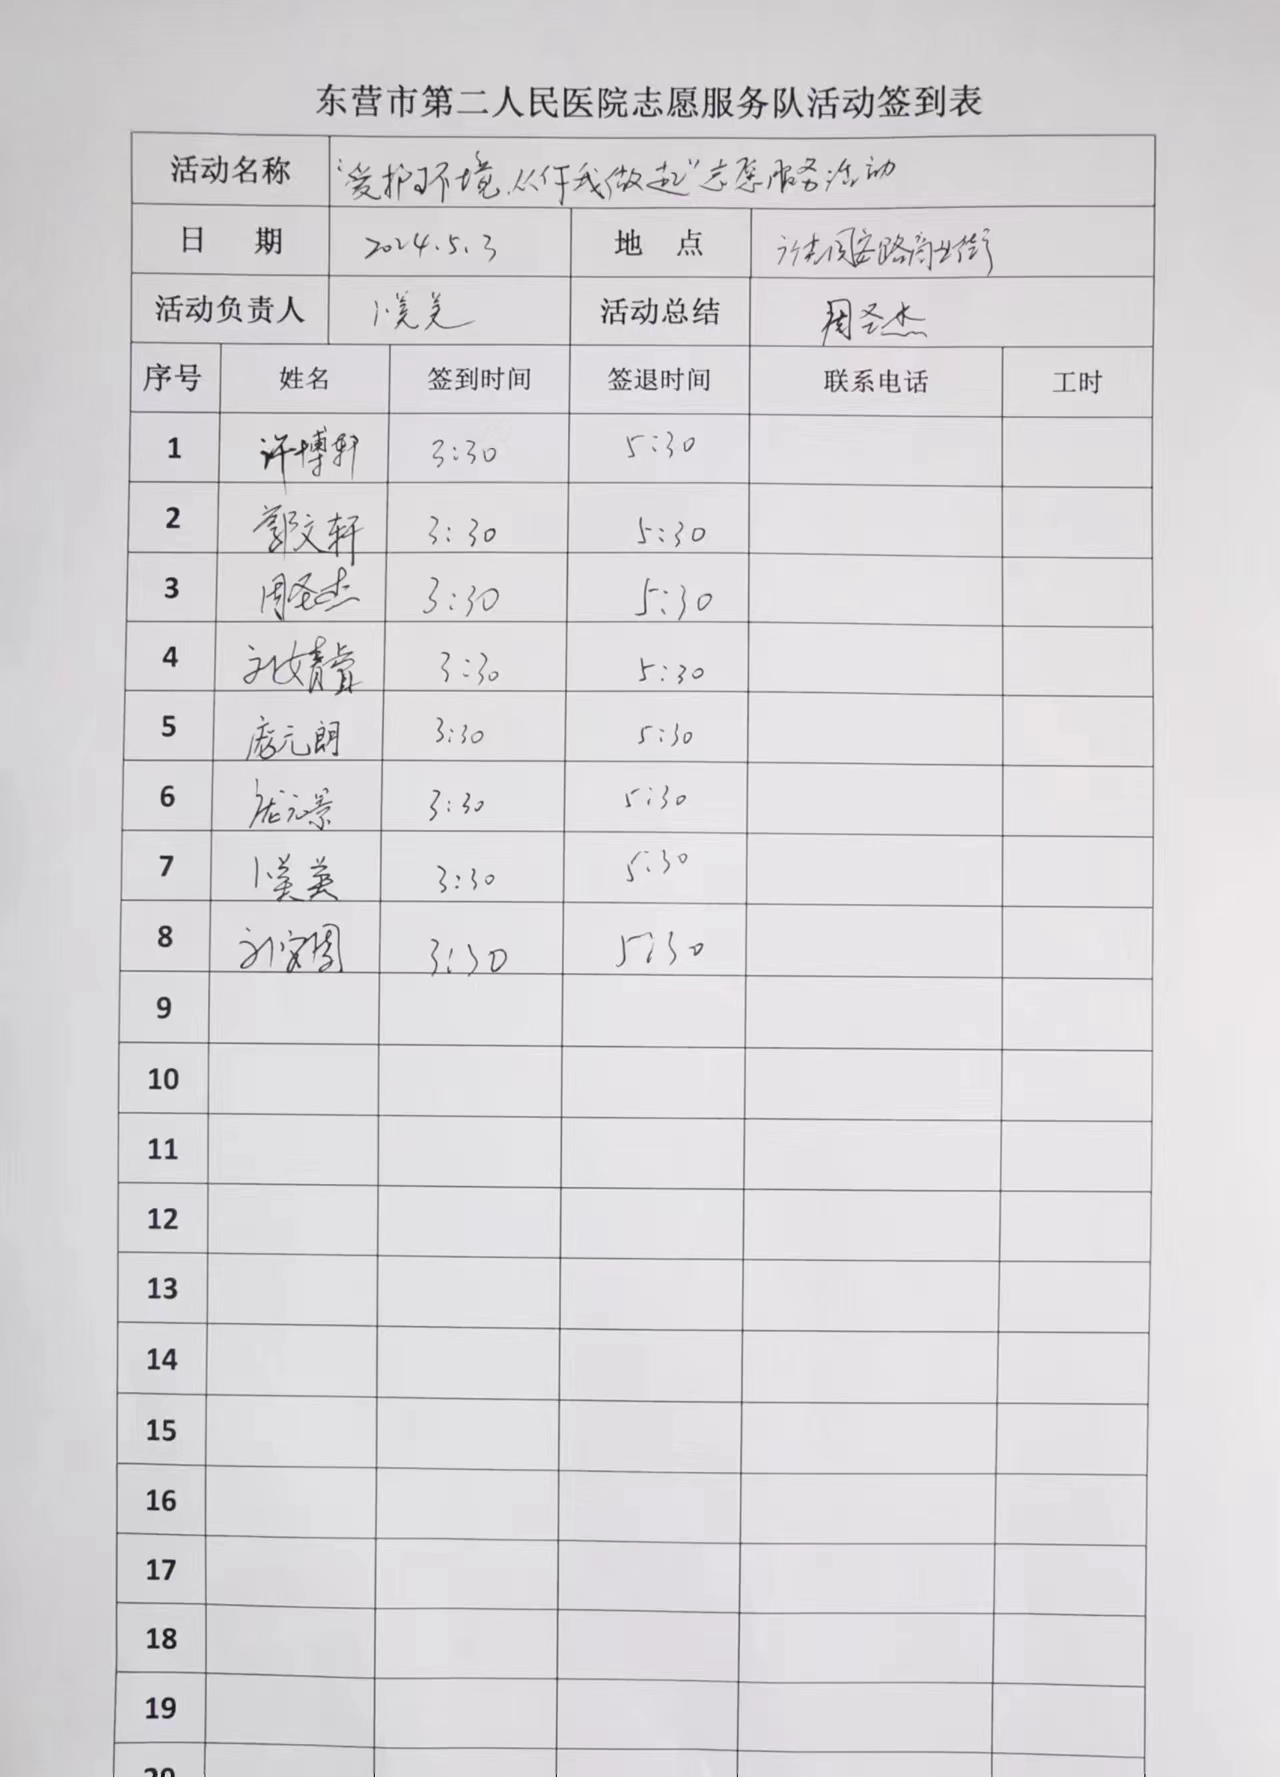 东营市第二人民医院志愿服务队活动签到表
活动名称 "爱护环境、从我做起"志愿服务活动
日 期 2024.5.3 地 点 路商业街
活动负责人 活动总结 周圣杰
序号 姓名 签到时间 签退时间 联系电话 工时
1 许博轩 3:30 5:30
2 郭文轩 3:30 5:30
3 周圣杰 3:30 5:30
4 刘婧 3:30 5:30
5 庞元朗 3:30 5:30
6 庞元景 3:30 5:30
7 3:30 5:30
8 刘 3:30 5:30
9
10
11
12
13
14
15
16
17
18
19
20